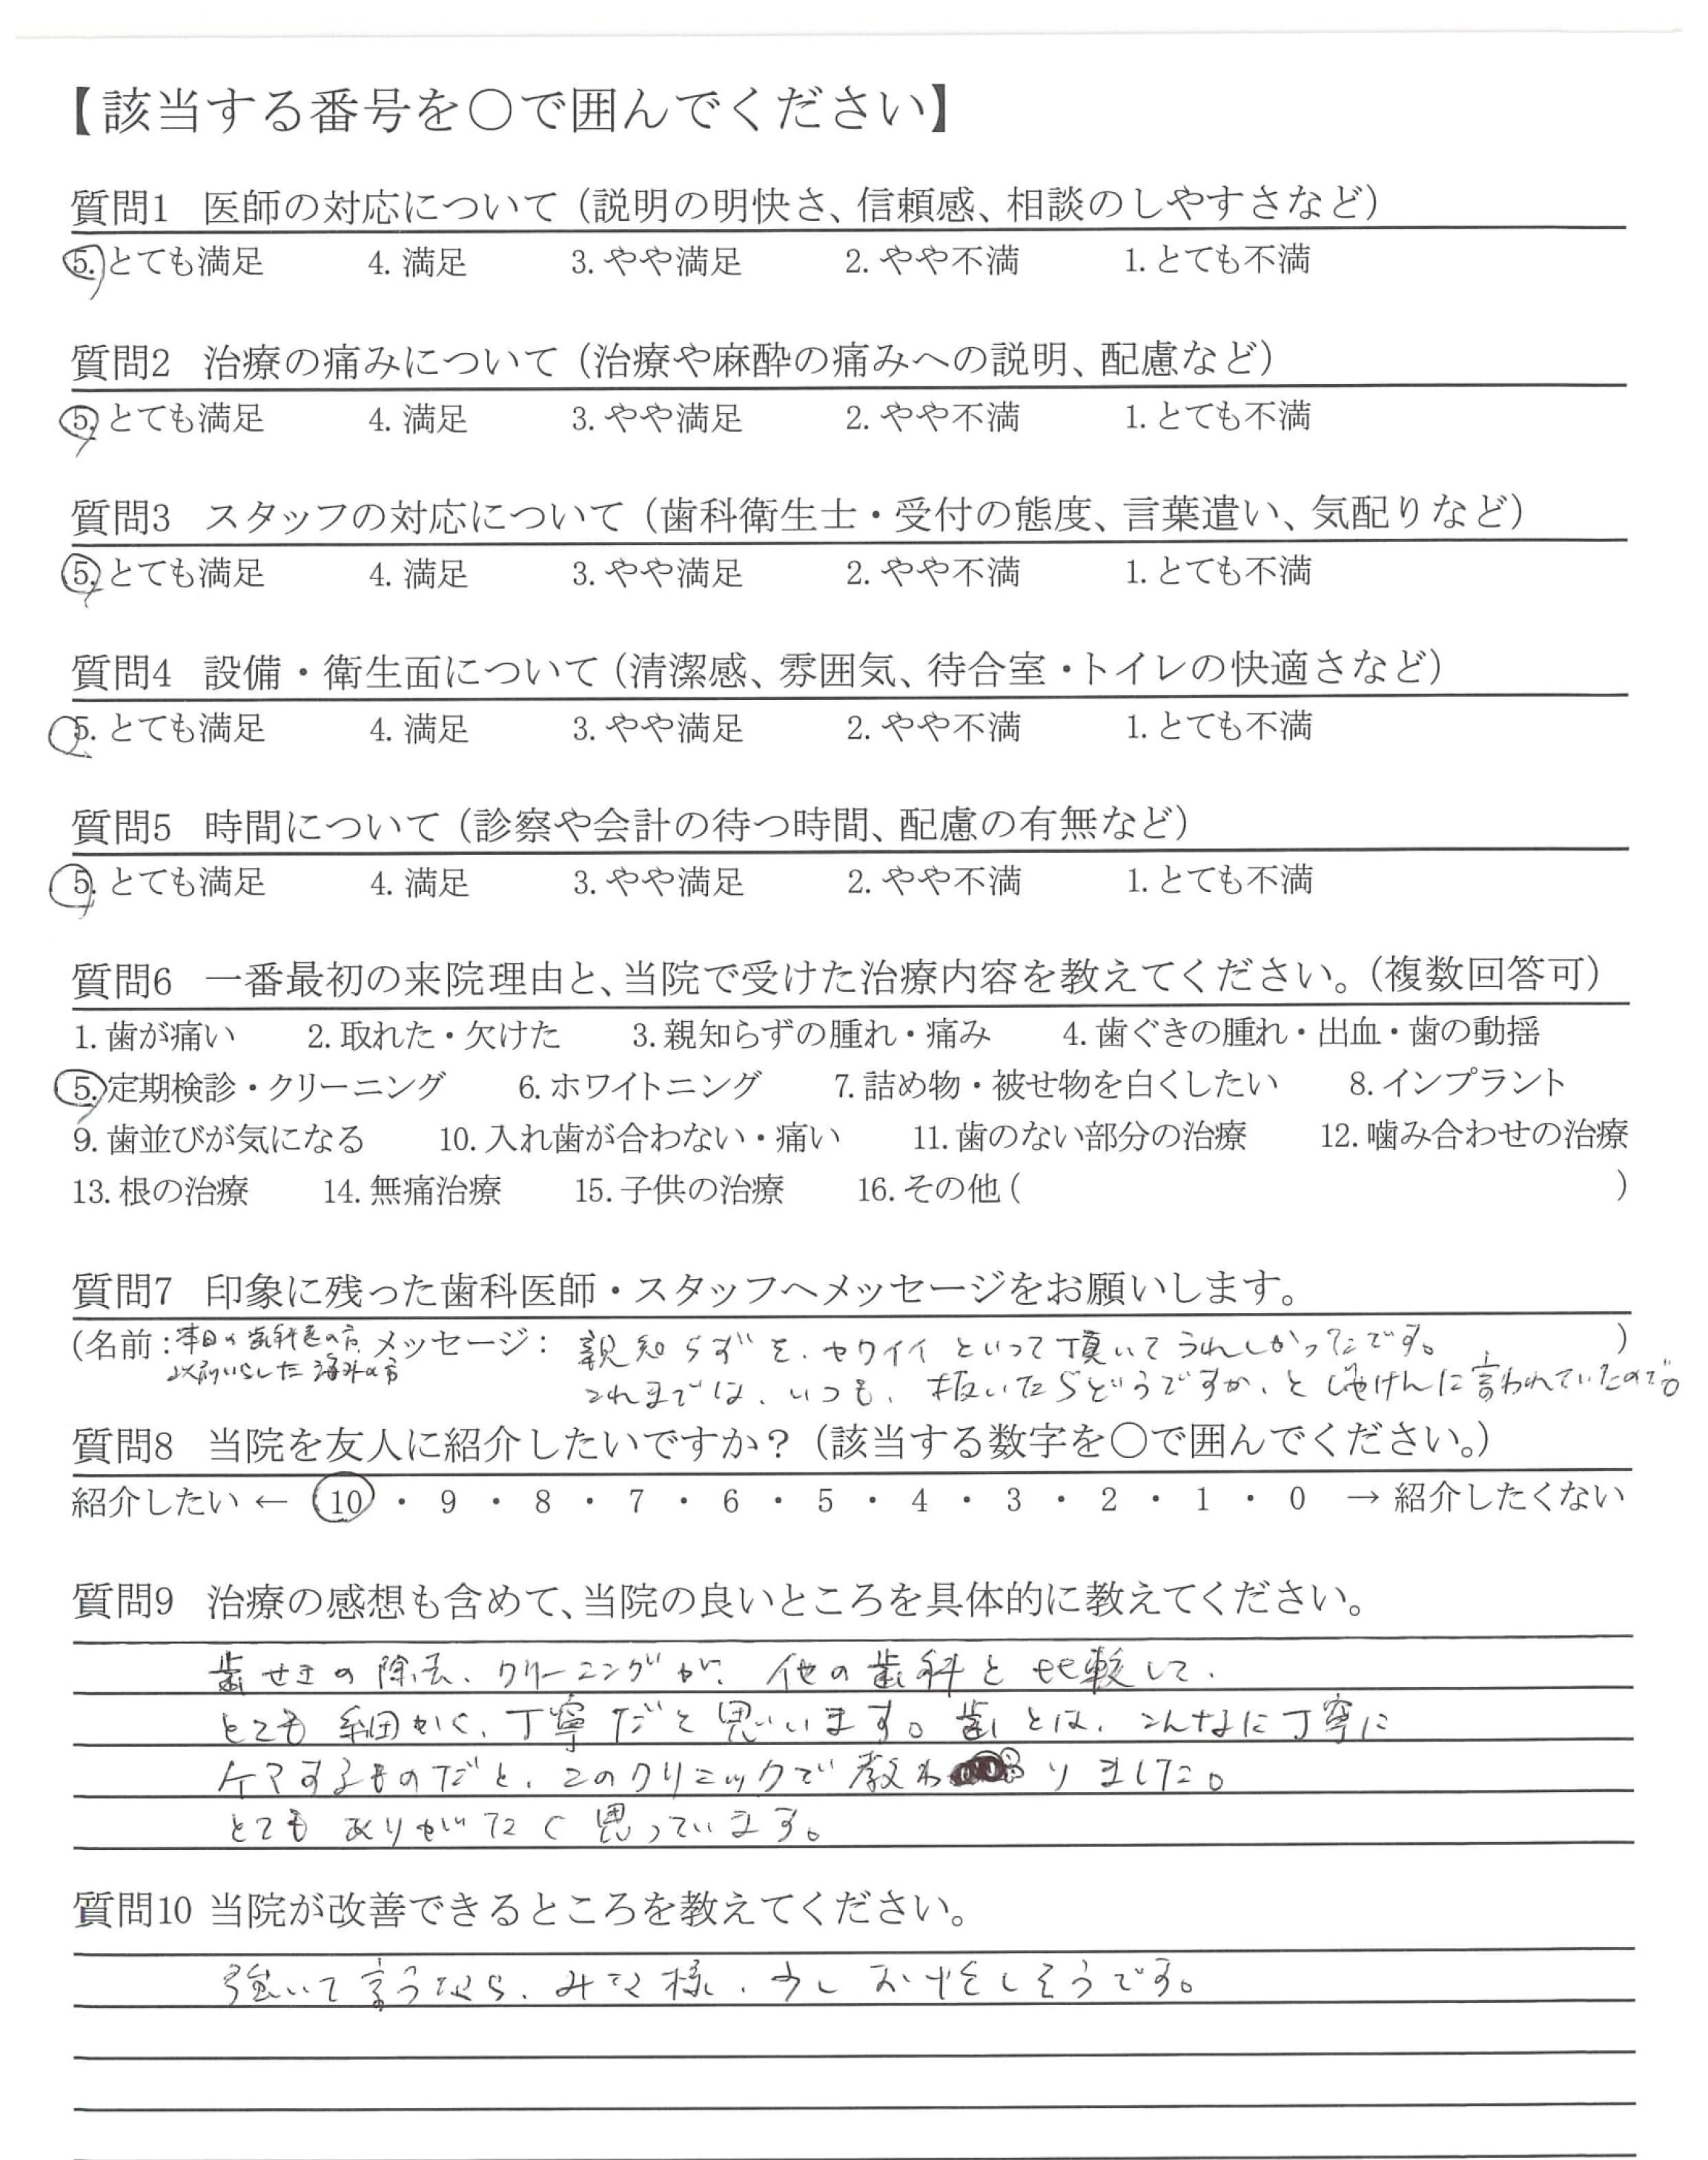 【該当する番号を○で囲んでください】
質問1 医師の対応について（説明の明快さ、信頼感、相談のしやすさなど）
5. とても満足 4. 満足 3. やや満足 2. やや不満 1. とても不満
質問2 治療の痛みについて（治療や麻酔の痛みへの説明、配慮など）
5. とても満足 4. 満足 3. やや満足 2. やや不満 1. とても不満
質問3 スタッフの対応について（歯科衛生士・受付の態度、言葉遣い、気配りなど）
5. とても満足 4. 満足 3. やや満足 2. やや不満 1. とても不満
質問4 設備・衛生面について（清潔感、雰囲気、待合室・トイレの快適さなど）
5. とても満足 4. 満足 3. やや満足 2. やや不満 1. とても不満
質問5 時間について（診察や会計の待つ時間、配慮の有無など）
5. とても満足 4. 満足 3. やや満足 2. やや不満 1. とても不満
質問6 一番最初の来院理由と、当院で受けた治療内容を教えてください。（複数回答可）
1. 歯が痛い 2. 取れた・欠けた 3. 親知らずの腫れ・痛み 4. 歯ぐきの腫れ・出血・歯の動揺
5. 定期検診・クリーニング 6. ホワイトニング 7. 詰め物・被せ物を白くしたい 8. インプラント
9. 歯並びが気になる 10. 入れ歯が合わない・痛い 11. 歯のない部分の治療 12. 噛み合わせの治療
13. 根の治療 14. 無痛治療 15. 子供の治療 16. その他（ ）
質問7 印象に残った歯科医師・スタッフへメッセージをお願いします。
（名前：本日の歯科医の方、メッセージ：親知らずを、カワイイといって頂いてうれしかったです。）
以前いらした海外の方 これまでは、いつも、抜いたらどうですか、と 言われていたので。
質問8 当院を友人に紹介したいですか？（該当する数字を○で囲んでください。）
紹介したい ← 10 ・ 9 ・ 8 ・ 7 ・ 6 ・ 5 ・ 4 ・ 3 ・ 2 ・ 1 ・ 0 → 紹介したくない
質問9 治療の感想も含めて、当院の良いところを具体的に教えてください。
歯せきの除去、クリーニングが、他の歯科と比較して、
とても細かく、丁寧だと思います。歯とは、こんなに丁寧に
ケアするものだと、このクリニックで教わりました。
とてもありがたく思っています。
質問10 当院が改善できるところを教えてください。
強いて言うなら、みな様、少しお忙しそうです。